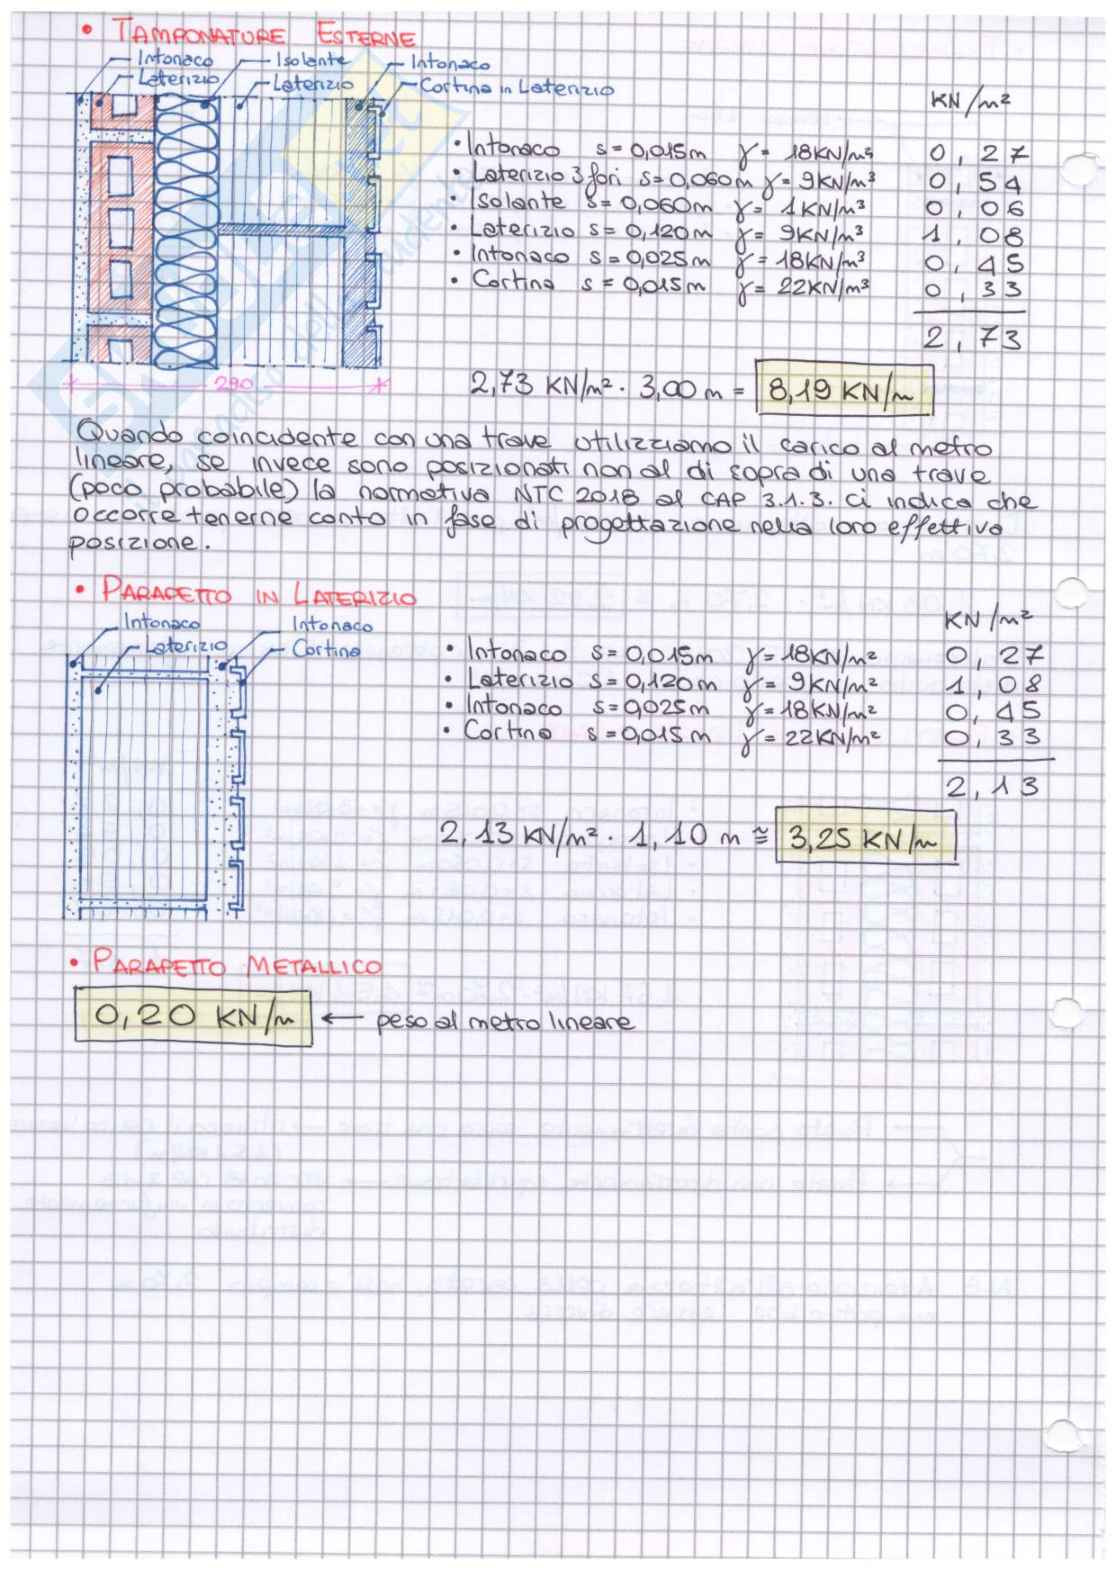 • TAMPONATURE ESTERNE
Intonaco Isolante Intonaco
Laterizio Laterizio Cortina in Laterizio
KN/m²
• Intonaco s=0,015m γ= 18KN/m³ 0,27
• Laterizio 3 fori s=0,060m γ= 9KN/m³ 0,54
• Isolante s=0,060m γ= 1KN/m³ 0,06
• Laterizio s=0,120m γ= 9KN/m³ 1,08
• Intonaco s=0,025m γ= 18KN/m³ 0,45
• Cortina s=0,015m γ= 22KN/m³ 0,33
2,73
290
2,73 KN/m² · 3,00 m = 8,19 KN/m
Quando coincidente con una trave utilizziamo il carico al metro
lineare, se invece sono posizionati non al di sopra di una trave
(poco probabile) la normativa NTC 2018 al CAP 3.1.3. ci indica che
occorre tenerne conto in fase di progettazione nella loro effettiva
posizione.
• PARAPETTO IN LATERIZIO
Intonaco Intonaco
Laterizio Cortina
KN/m²
• Intonaco s=0,015m γ=18KN/m² 0,27
• Laterizio s=0,120m γ= 9KN/m² 1,08
• Intonaco s=0,025m γ=18KN/m² 0,45
• Cortina s=0,015m γ=22KN/m² 0,33
2,13
2,13 KN/m² · 1,10 m ≅ 3,25 KN/m
• PARAPETTO METALLICO
0,20 KN/m ← peso al metro lineare